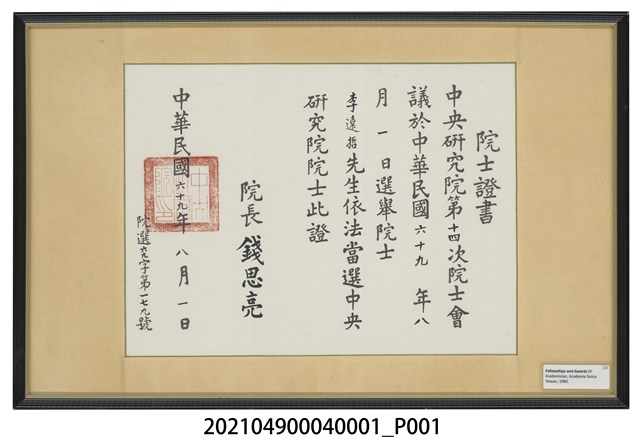 院士證書
中央研究院第十四次院士會
議於中華民國六十九年八
月一日選舉院士
李遠哲先生依法當選中央
研究院院士此證
院長錢思亮
中華民國六十九年八月一日
院選充字第一七九號
Fellowships and Awards 07
Academician, Academia Sinica
Taiwan, 1980.
202104900040001_P001